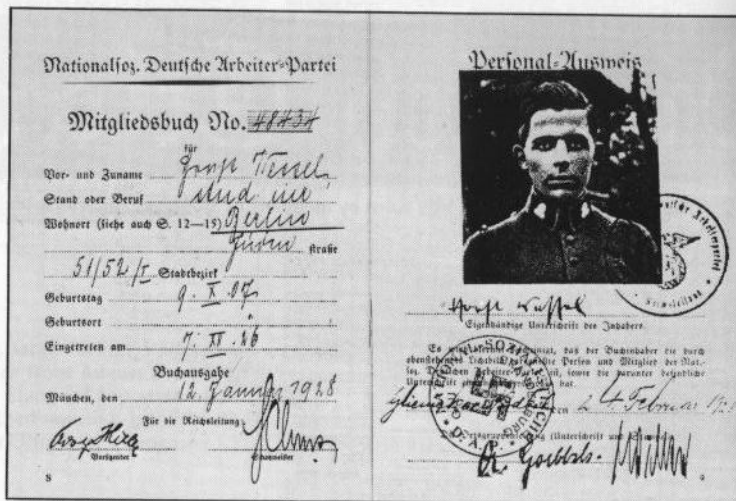 Nationalsoz. Deutsche Arbeiter-Partei
Mitgliedsbuch No. 48434
für
Vor- und Zuname Horst Wessel
Stand oder Beruf stud iur
Wohnort (siehe auch S. 12—15) Berlin
Jüden straße
51/52/I Stadtbezirk
Geburtstag 9. X. 07
Geburtsort
Eingetreten am 7. XII. 26
Buchausgabe
München, den 12. Januar 1928
Für die Reichsleitung:
Vorsitzender Schatzmeister
8
Personal-Ausweis
Horst Wessel
Eigenhändige Unterschrift des Inhabers.
Es wird hiermit bescheinigt, daß der Buchinhaber die durch
obenstehendes Lichtbild dargestellte Person und Mitglied der Nat.-
soz. Deutschen Arbeiter-Partei ist, sowie die darunter befindliche
Unterschrift eigenhändig vollzogen hat.
den 24. Februar
(Unterschrift und
Dr. Goebbels.
9